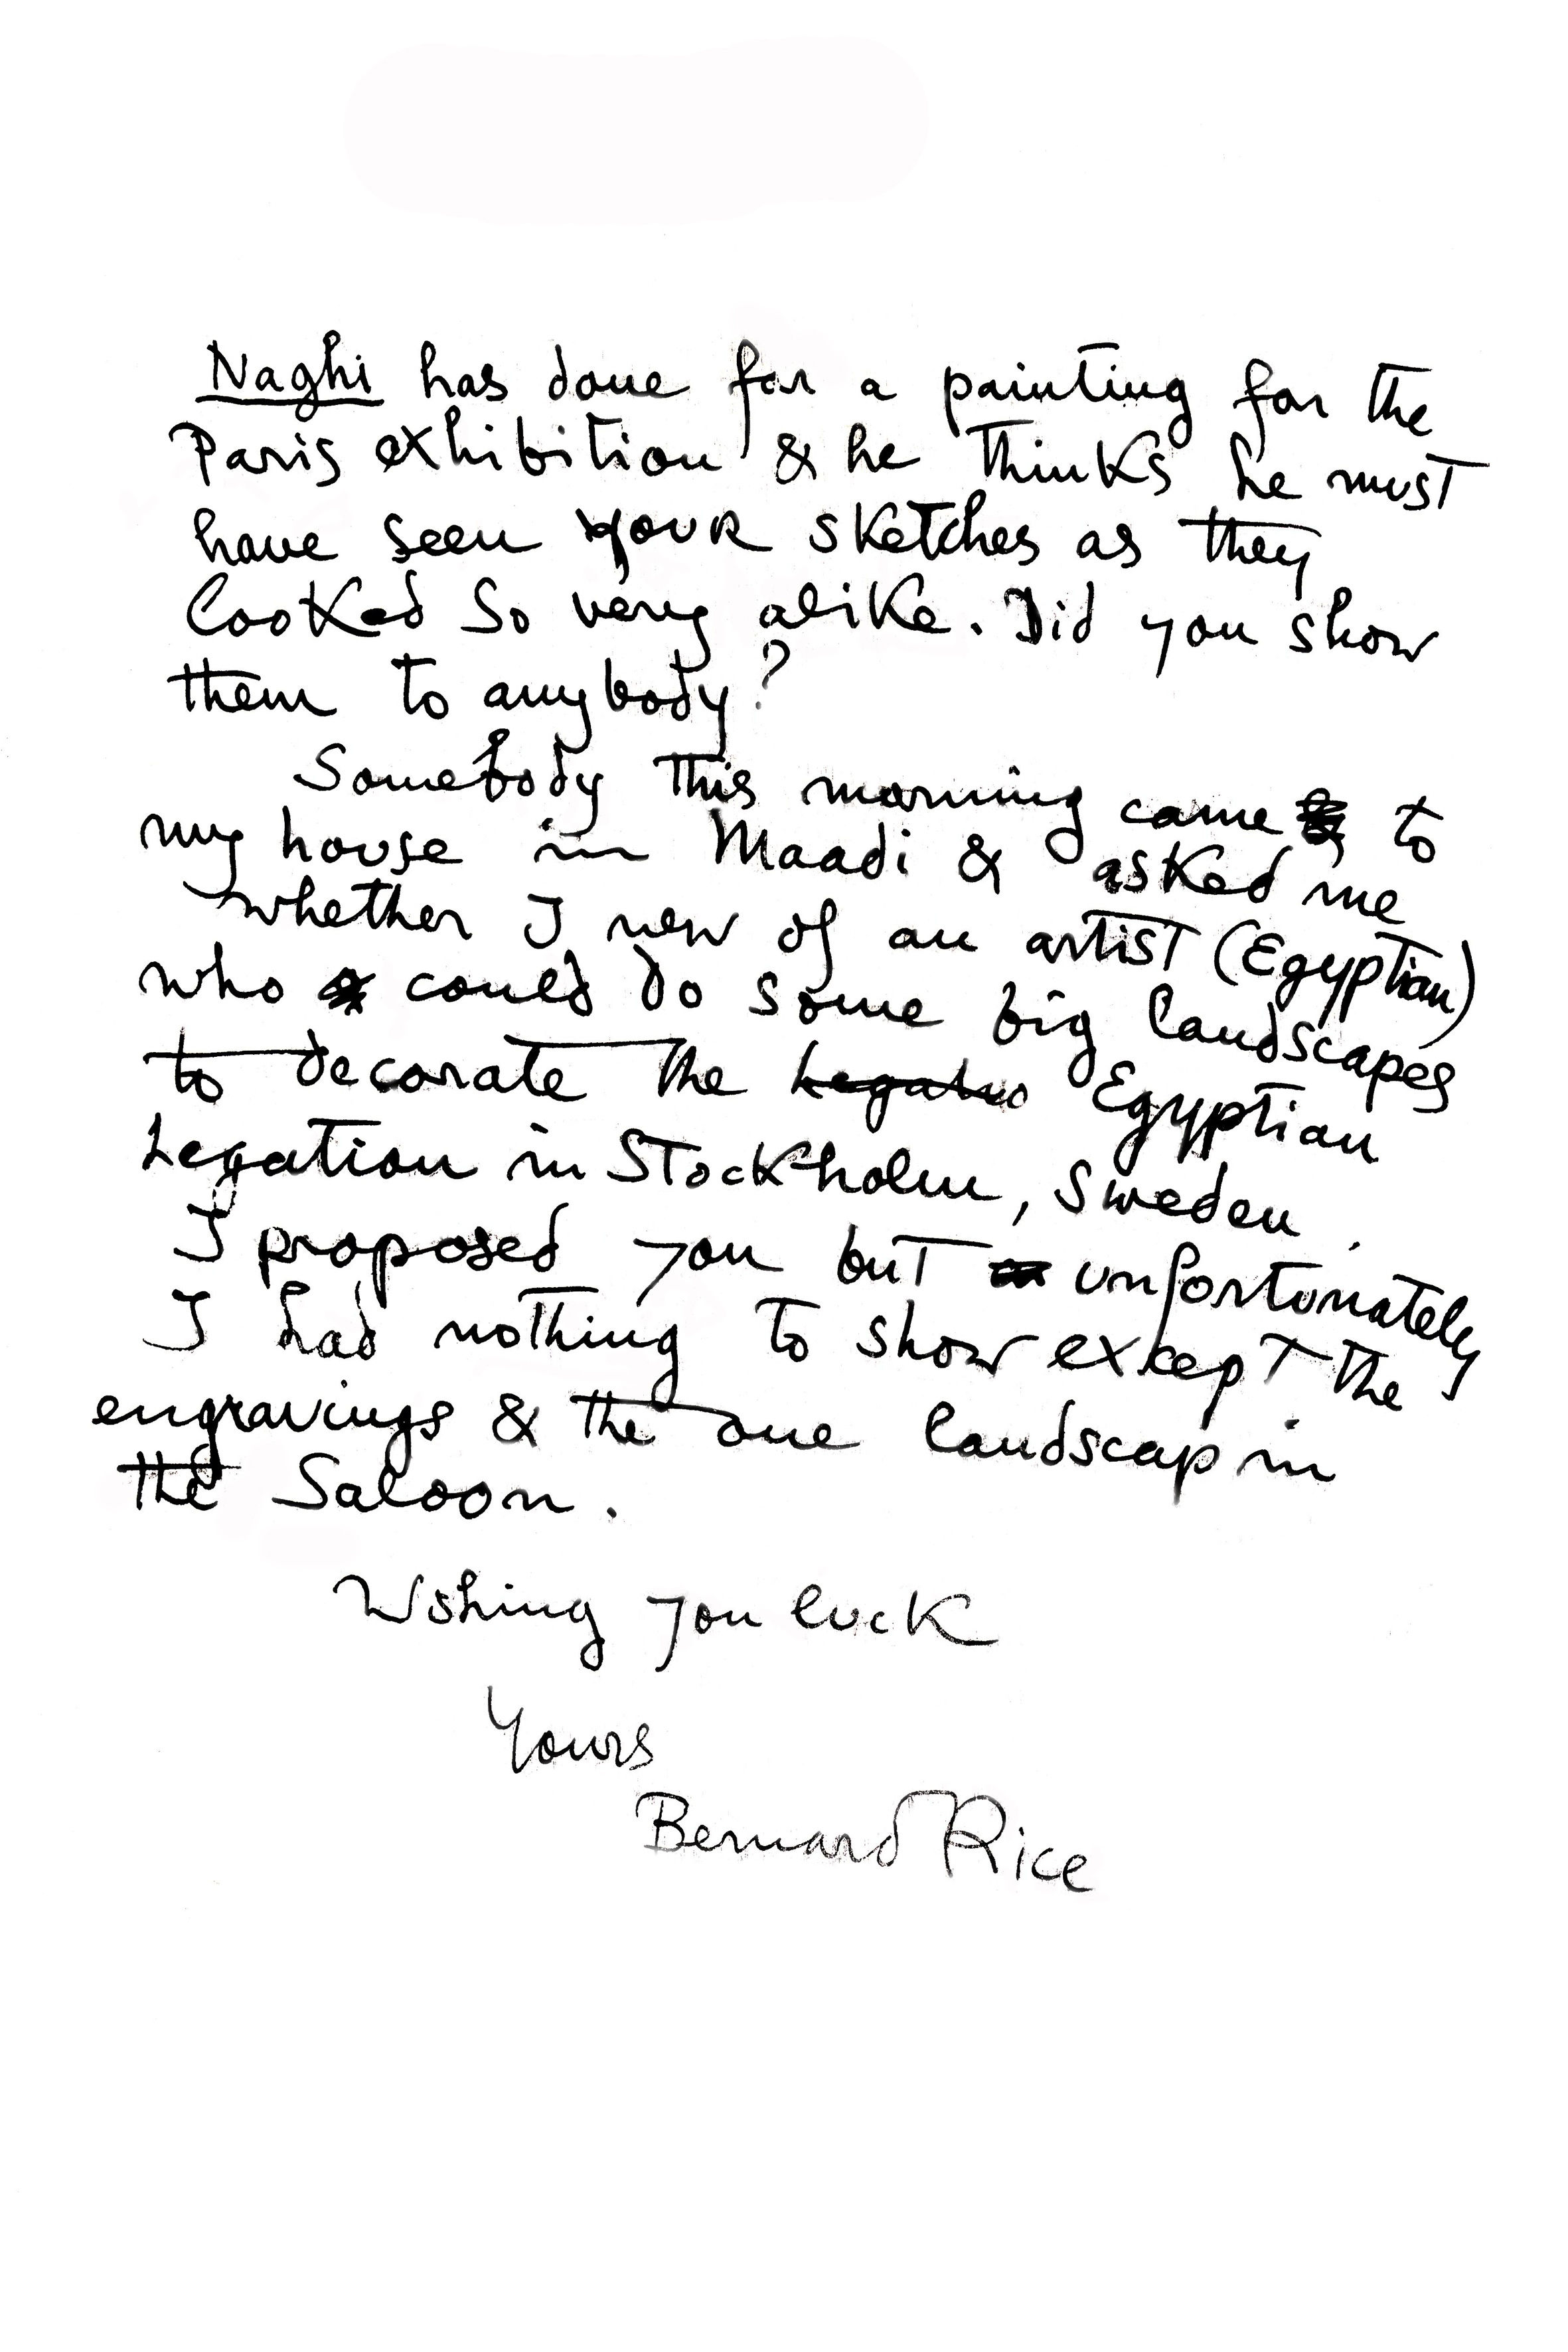 Naghi has done for a painting for the
Paris exhibition & he thinks he must
have seen YOUR sketches as they
looked so very alike. Did you show
them to anybody?
Somebody this morning came to
my house in Maadi & asked me
whether I new of an artist (Egyptian)
who could do some big landscapes
to decorate the Legatio Egyptian
Legation in Stockholm, Sweden.
I proposed you but unfortunately
I had nothing to show except the
engravings & the one landscap in
the Saloon.
Wshing you luck
Yours
Bernard Rice